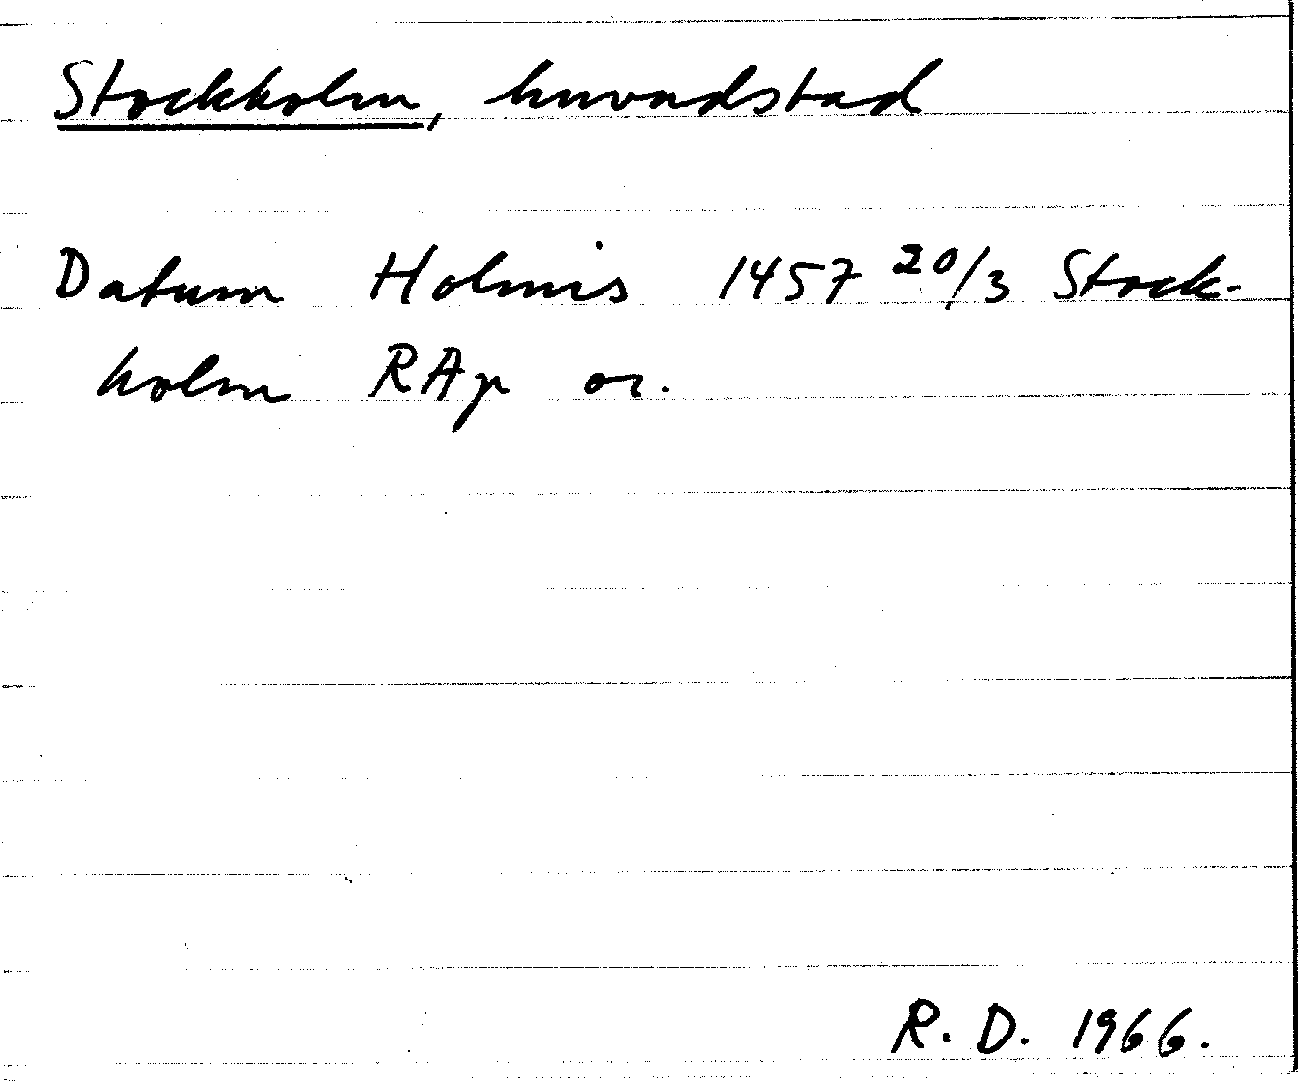 Stockholm, huvudstad
Datum Holmis 1457 20/3 Stock-
holm RAp or.
R. D. 1966.